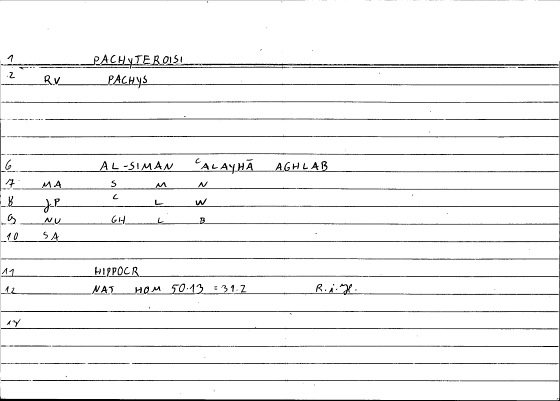 1 PACHYTEROISI
2 RV PACHYS
6 AL-SIMAN ʿALAYHĀ AGHLAB
7 MA S M N
8 JP ʿ L W
9 NU GH L B
10 SA
11 HIPPOCR
12 NAT HOM 50.13 = 31.2 R.i.H.
14